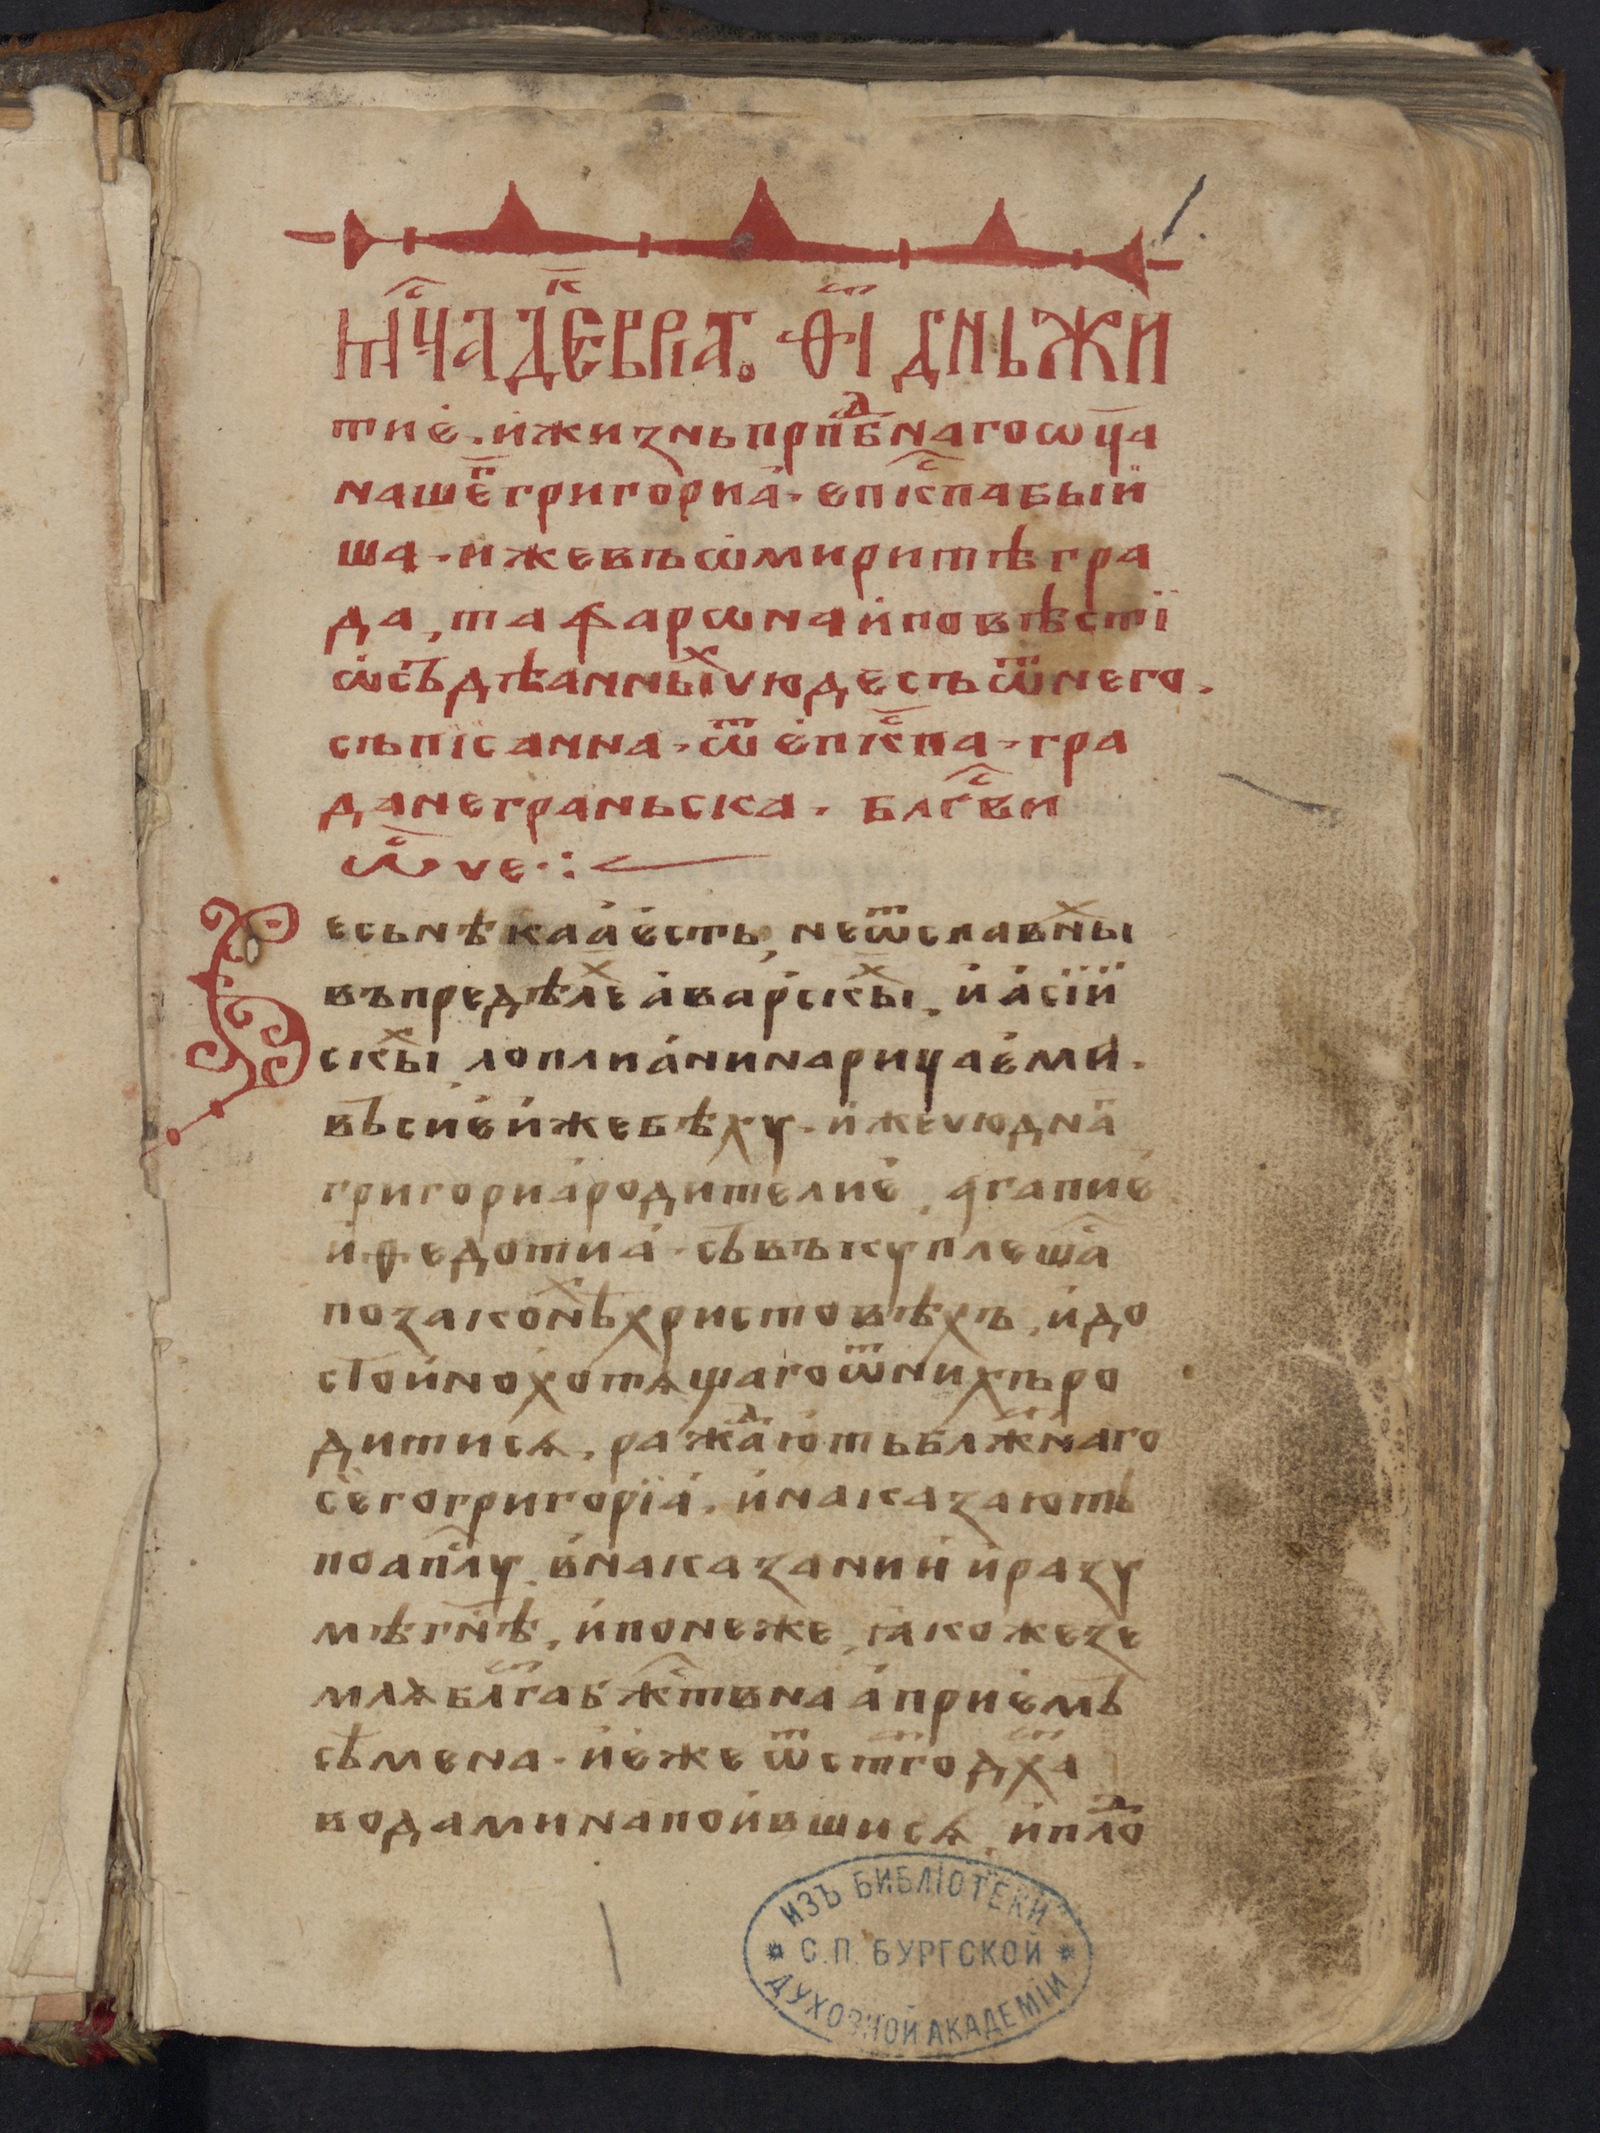 мⷭ҇ца декⷡ҇врїа. ѳ҃і днь жи
тие́. и҆ жизнь прпⷣбнаго ѡц҃а
нашеⷢ҇ григориа́. епⷭ҇кпа бы́й
ша. и҆же въ ѡ҆миритѣ гра
да, тафарѡна и҆ повѣстї
ѡ҆ съдѣанныⷯ чюдесъ ѿ него.
съпїсанна. ѿ е҆пⷭ҇кпа. гра
да неграньска. блгⷭ҇ви
ѡⷮч҃е.:
есь нѣкаа́ е́сть, не ѿ славныⷯ
въ пределѣⷯ а҆ва́рскыⷯ. и҆ а҆сїи
скыⷯ лоплиа́ни нарицае́ми́.
въ сие́й и҆же бѣху. и҆же чюднаⷢ
григориа́ родителие́, агапие́
и҆ ѳедотиа́. съвъкуплешаⷭ
по законѣⷯ христовѣхъ, и҆ до
стойно хотѧщаго ѿ нихъ ро
дитисѧ. ражⷣають блжⷩ҇наго
сего григорїа́. и҆ наказають
по апⷭ҇лу, в наказании́ и҆ разу
мѣ гн҃ѣ, и҆ понеже, ꙗкоже зе
млѧ блг҃а бжⷭ҇твнаа́ прие́мъ
сѣмена. и҆ е́же ѿ стг҃о дх҃а
водами напои́вшисѧ, и҆ плⷣо
ИЗЪ БИБЛІОТЕКИ
С.П.БУРГСКОЙ
ДУХОВНОЙ АКАДЕМІИ